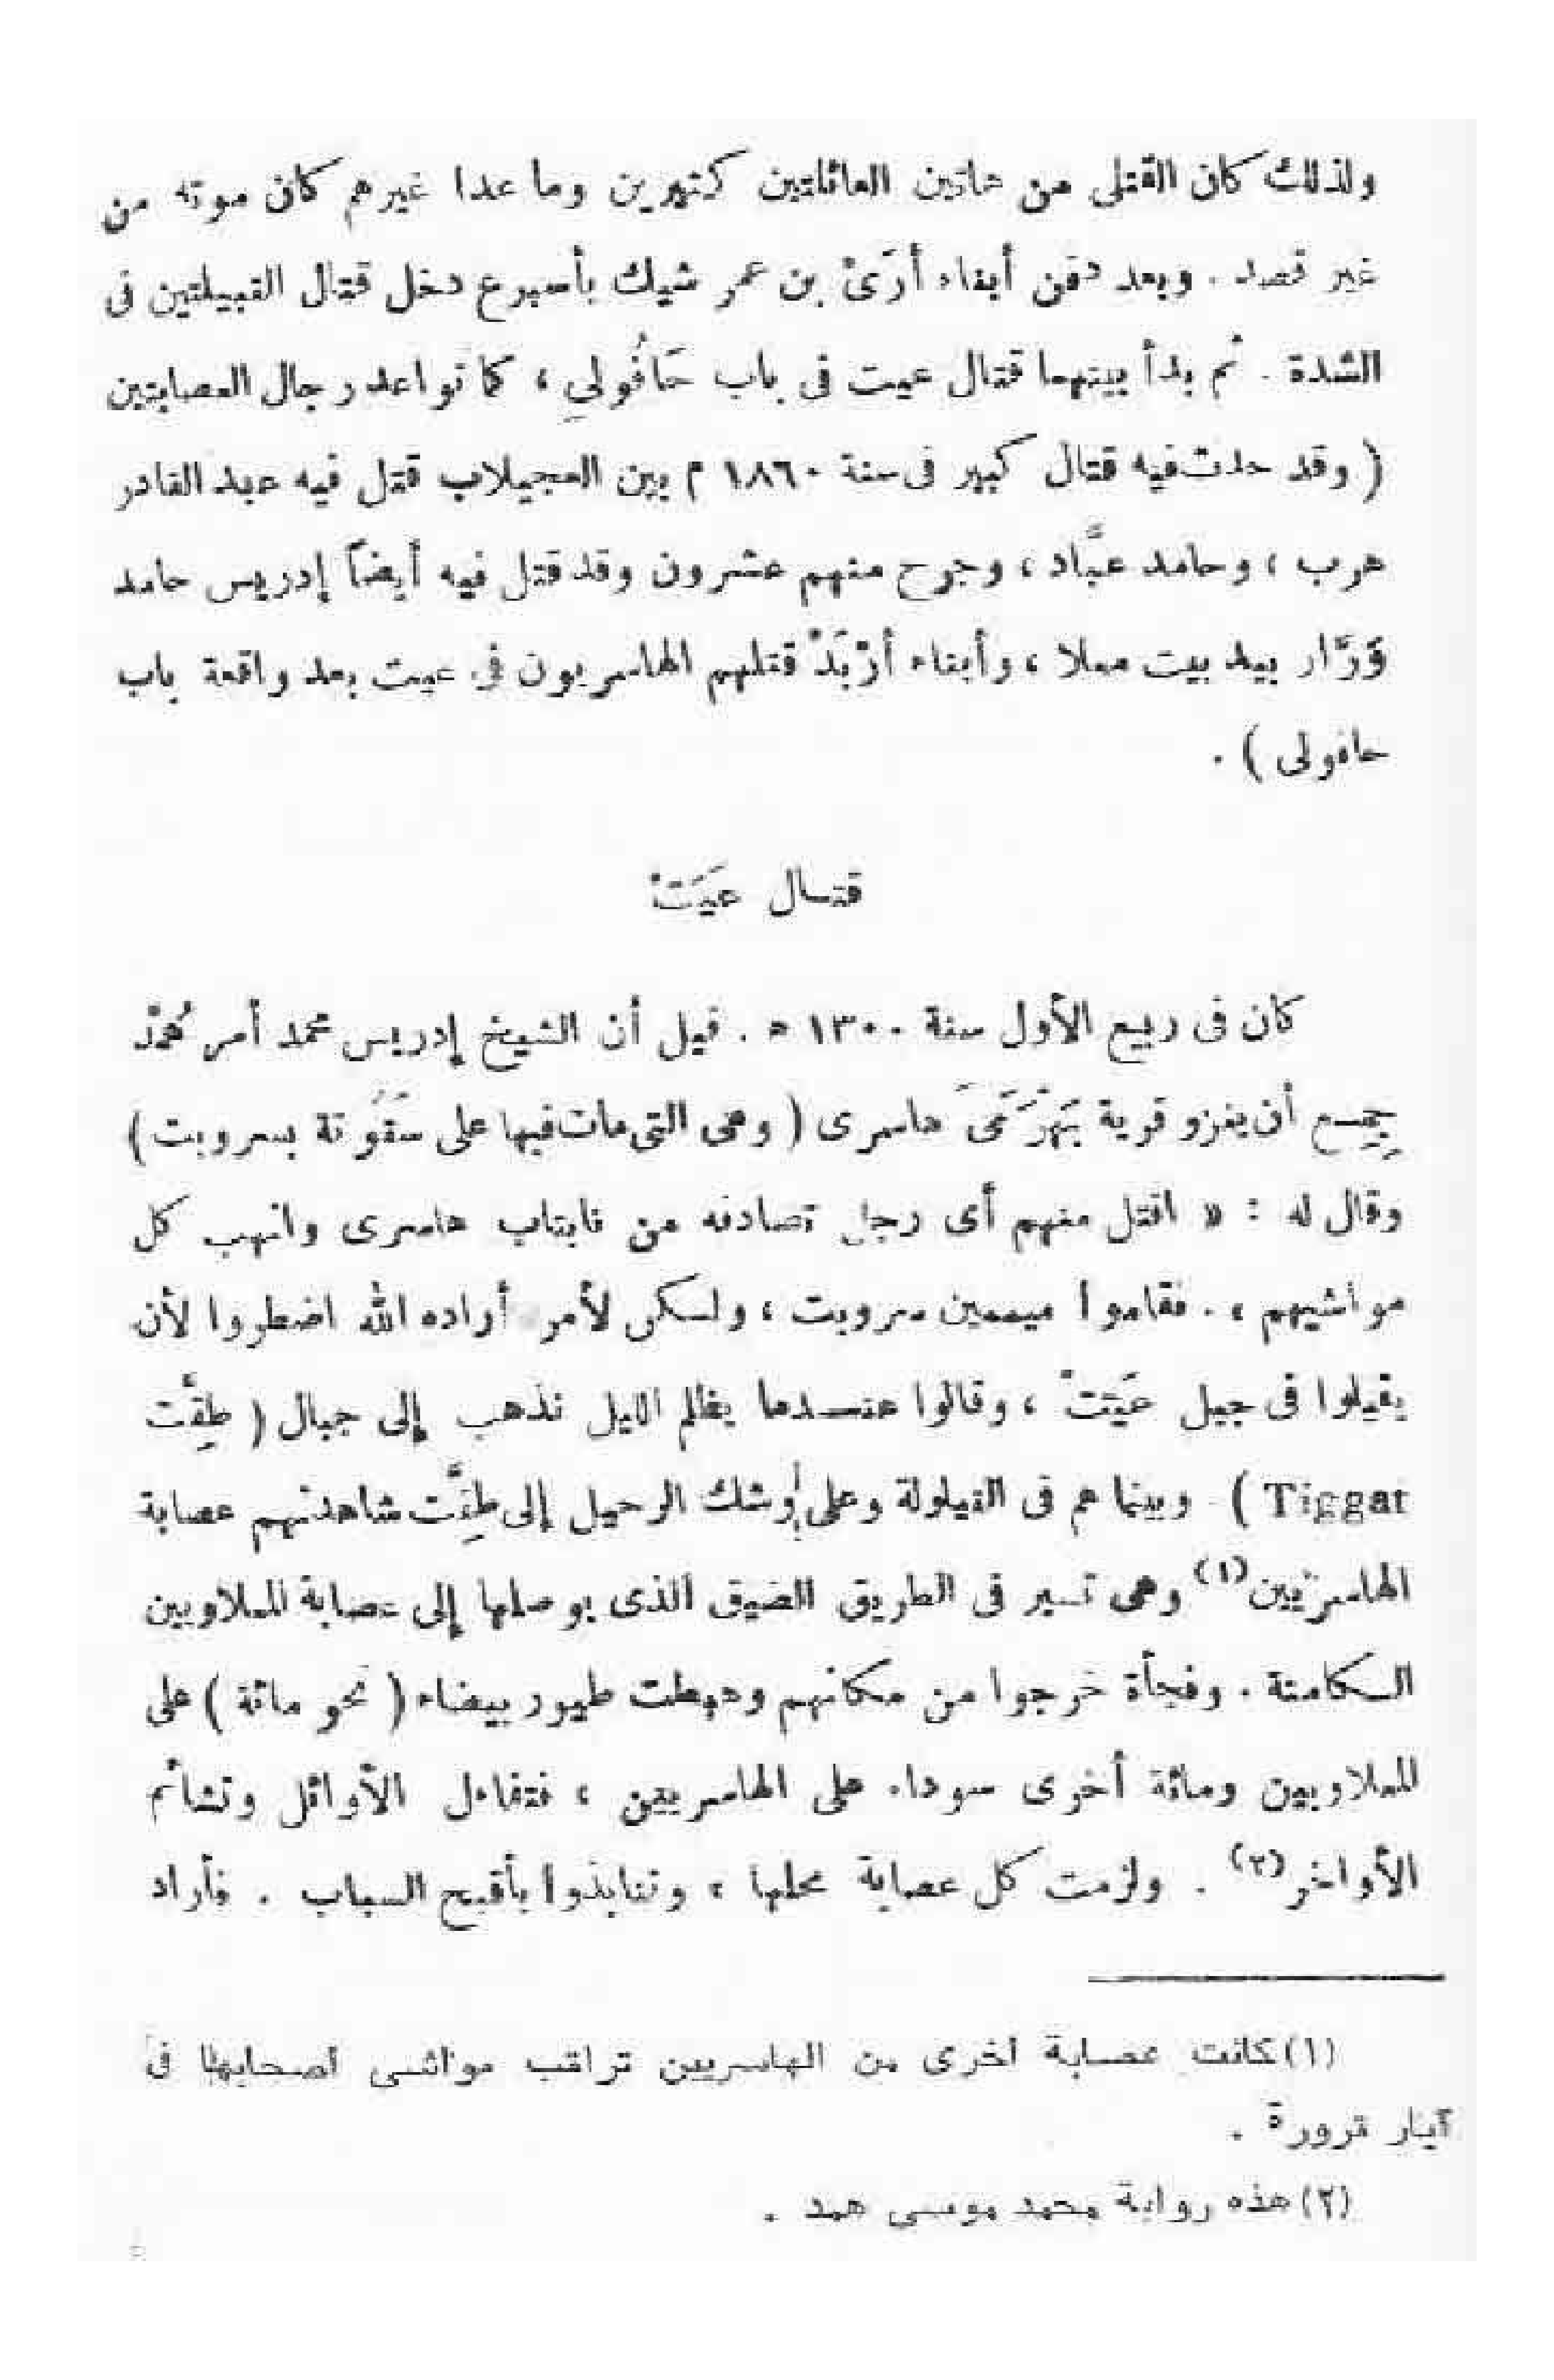 ولذلك كان القتلى من هاتين العائلتين كثيرين وما عدا غيرهم كان موته من
غير قصد . وبعد دفن أبناء أرَىْ بن عمر شيك بأسبوع دخل قتال القبيلتين فى
الشدة . ثم بدأ بينهما قتال عيت فى باب حَافُولى ، كما تواعد رجال العصابتين
( وقد حدث فيه قتال كبير فى سنة ١٨٦٠ م بين العجيلاب قتل فيه عبد القادر
هرب ، وحامد عبَّاد ، وجرح منهم عشرون وقد قتل فيه أيضاً إدريس حامد
قرَّار بيد بيت معلا ، وأبناء أرْبَدْ قتلهم الهاسريون فى عيت بعد واقعة باب
حافولى ) .
قتال عَيَتْ
كان فى ربيع الأول سنة ١٣٠٠ ه . قيل أن الشيخ إدريس محمد أمر
جِمِع أن يغزو قرية هاسرى ( وهى التى مات فيها على بسروبت )
وقال له : « اقتل منهم أى رجل تصادفه من نابتاب هاسرى وانهب كل
مواشيهم » . فقاموا ميممين سروبت ، ولكن لأمر أراده الله اضطروا لأن
يقيلوا فى جبل عَيَتْ ، وقالوا عندما يظلم الليل نذهب إلى جبال ( طِقَّت
Tiggat ) وبينما هم فى القيلولة وعلى وشك الرحيل إلى طِقَّت شاهدتهم عصابة
الهاسريين(١) وهى تسير فى الطريق الضيق الذى يوصلها إلى عصابة المعلاويين
الكامنة . وفجأة خرجوا من مكانهم وهبطت طيور بيضاء ( نحو مائة ) على
المعلاويين ومائة أخرى سوداء على الهاسريين ، فتفاءل الأوائل وتشائم
الأواخر(٢) . ولزمت كل عصابة محلها ، وتنابذوا بأقبح السباب . فأراد
(١) كانت عصابة أخرى من الهاسريين تراقب مواشى أصحابها فى
آبار قرورة .
(٢) هذه رواية محمد موسى همد .